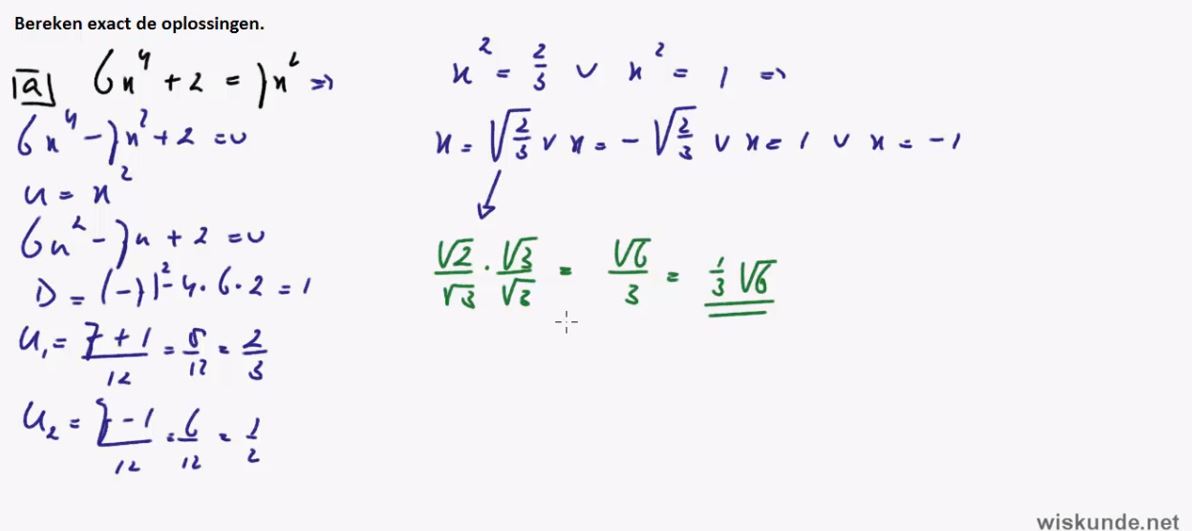 Bereken exact de oplossingen.
1a) 6x⁴ + 2 = 7x² ⇒
6x⁴ - 7x² + 2 = 0
u = x²
6u² - 7u + 2 = 0
D = (-7)² - 4 · 6 · 2 = 1
u₁ = 7+1/12 = 8/12 = 2/3
u₂ = 7-1/12 = 6/12 = 1/2
x² = 2/3 ∨ x² = 1 ⇒
x = √2/3 ∨ x = -√2/3 ∨ x = 1 ∨ x = -1
√2/√3 · √3/√3 = √6/3 = 1/3 √6
wiskunde.net